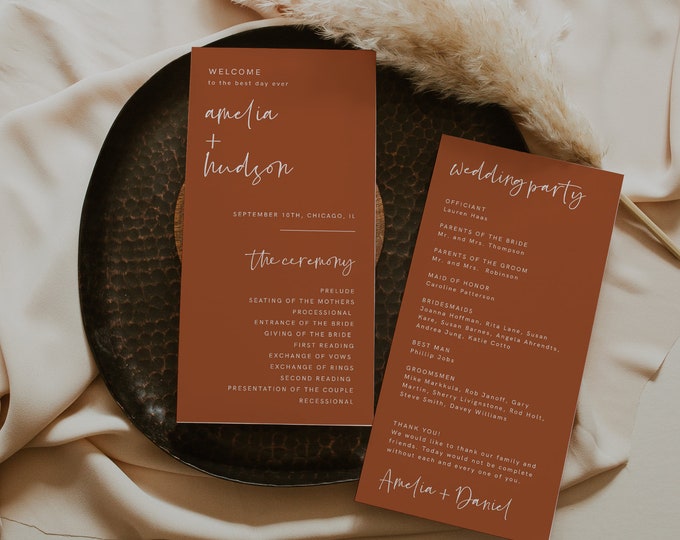 WELCOME
to the best day ever
amelia
+
hudson
SEPTEMBER 10TH, CHICAGO, IL
the ceremony
PRELUDE
SEATING OF THE MOTHERS
PROCESSIONAL
ENTRANCE OF THE BRIDE
GIVING OF THE BRIDE
FIRST READING
EXCHANGE OF VOWS
EXCHANGE OF RINGS
SECOND READING
PRESENTATION OF THE COUPLE
RECESSIONAL
wedding party
OFFICIANT
Lauren Haas
PARENTS OF THE BRIDE
Mr. and Mrs. Thompson
PARENTS OF THE GROOM
Mr. and Mrs. Robinson
MAID OF HONOR
Caroline Patterson
BRIDESMAIDS
Joanna Hoffman, Rita Lane, Susan
Kare, Susan Barnes, Angela Ahrendts,
Andrea Jung, Katie Cotto
BEST MAN
Phillip Jobs
GROOMSMEN
Mike Markkula, Rob Janoff, Gary
Martin, Sherry Livignstone, Rod Holt,
Steve Smith, Davey Williams
THANK YOU!
We would like to thank our family and
friends. Today would not be complete
without each and every one of you.
Amelia + Daniel